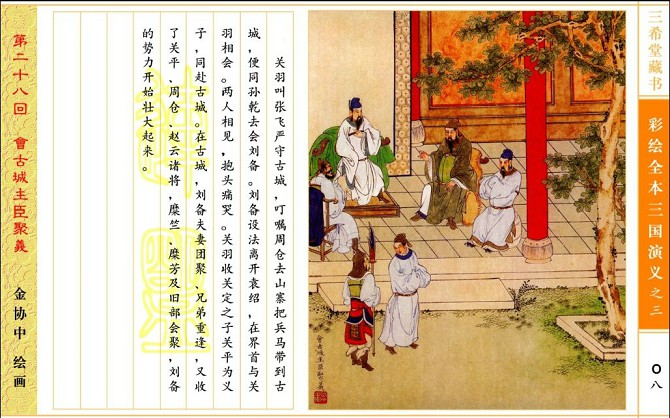 三希堂藏书
彩绘全本三国演义之三
〇八
关羽叫张飞严守古城，叮嘱周仓去山寨把兵马带到古
城，便同孙乾去会刘备。刘备设法离开袁绍，在界首与关
羽相会。两人相见，抱头痛哭。关羽收关定之子关平为义
子，同赴古城。在古城，刘备夫妻团聚、兄弟重逢，又收
了关平、周仓、赵云诸将，糜竺、糜芳及旧部会聚，刘备
的势力开始壮大起来。
第二十八回 會古城主臣聚義
金协中 绘画
會古城主臣聚義